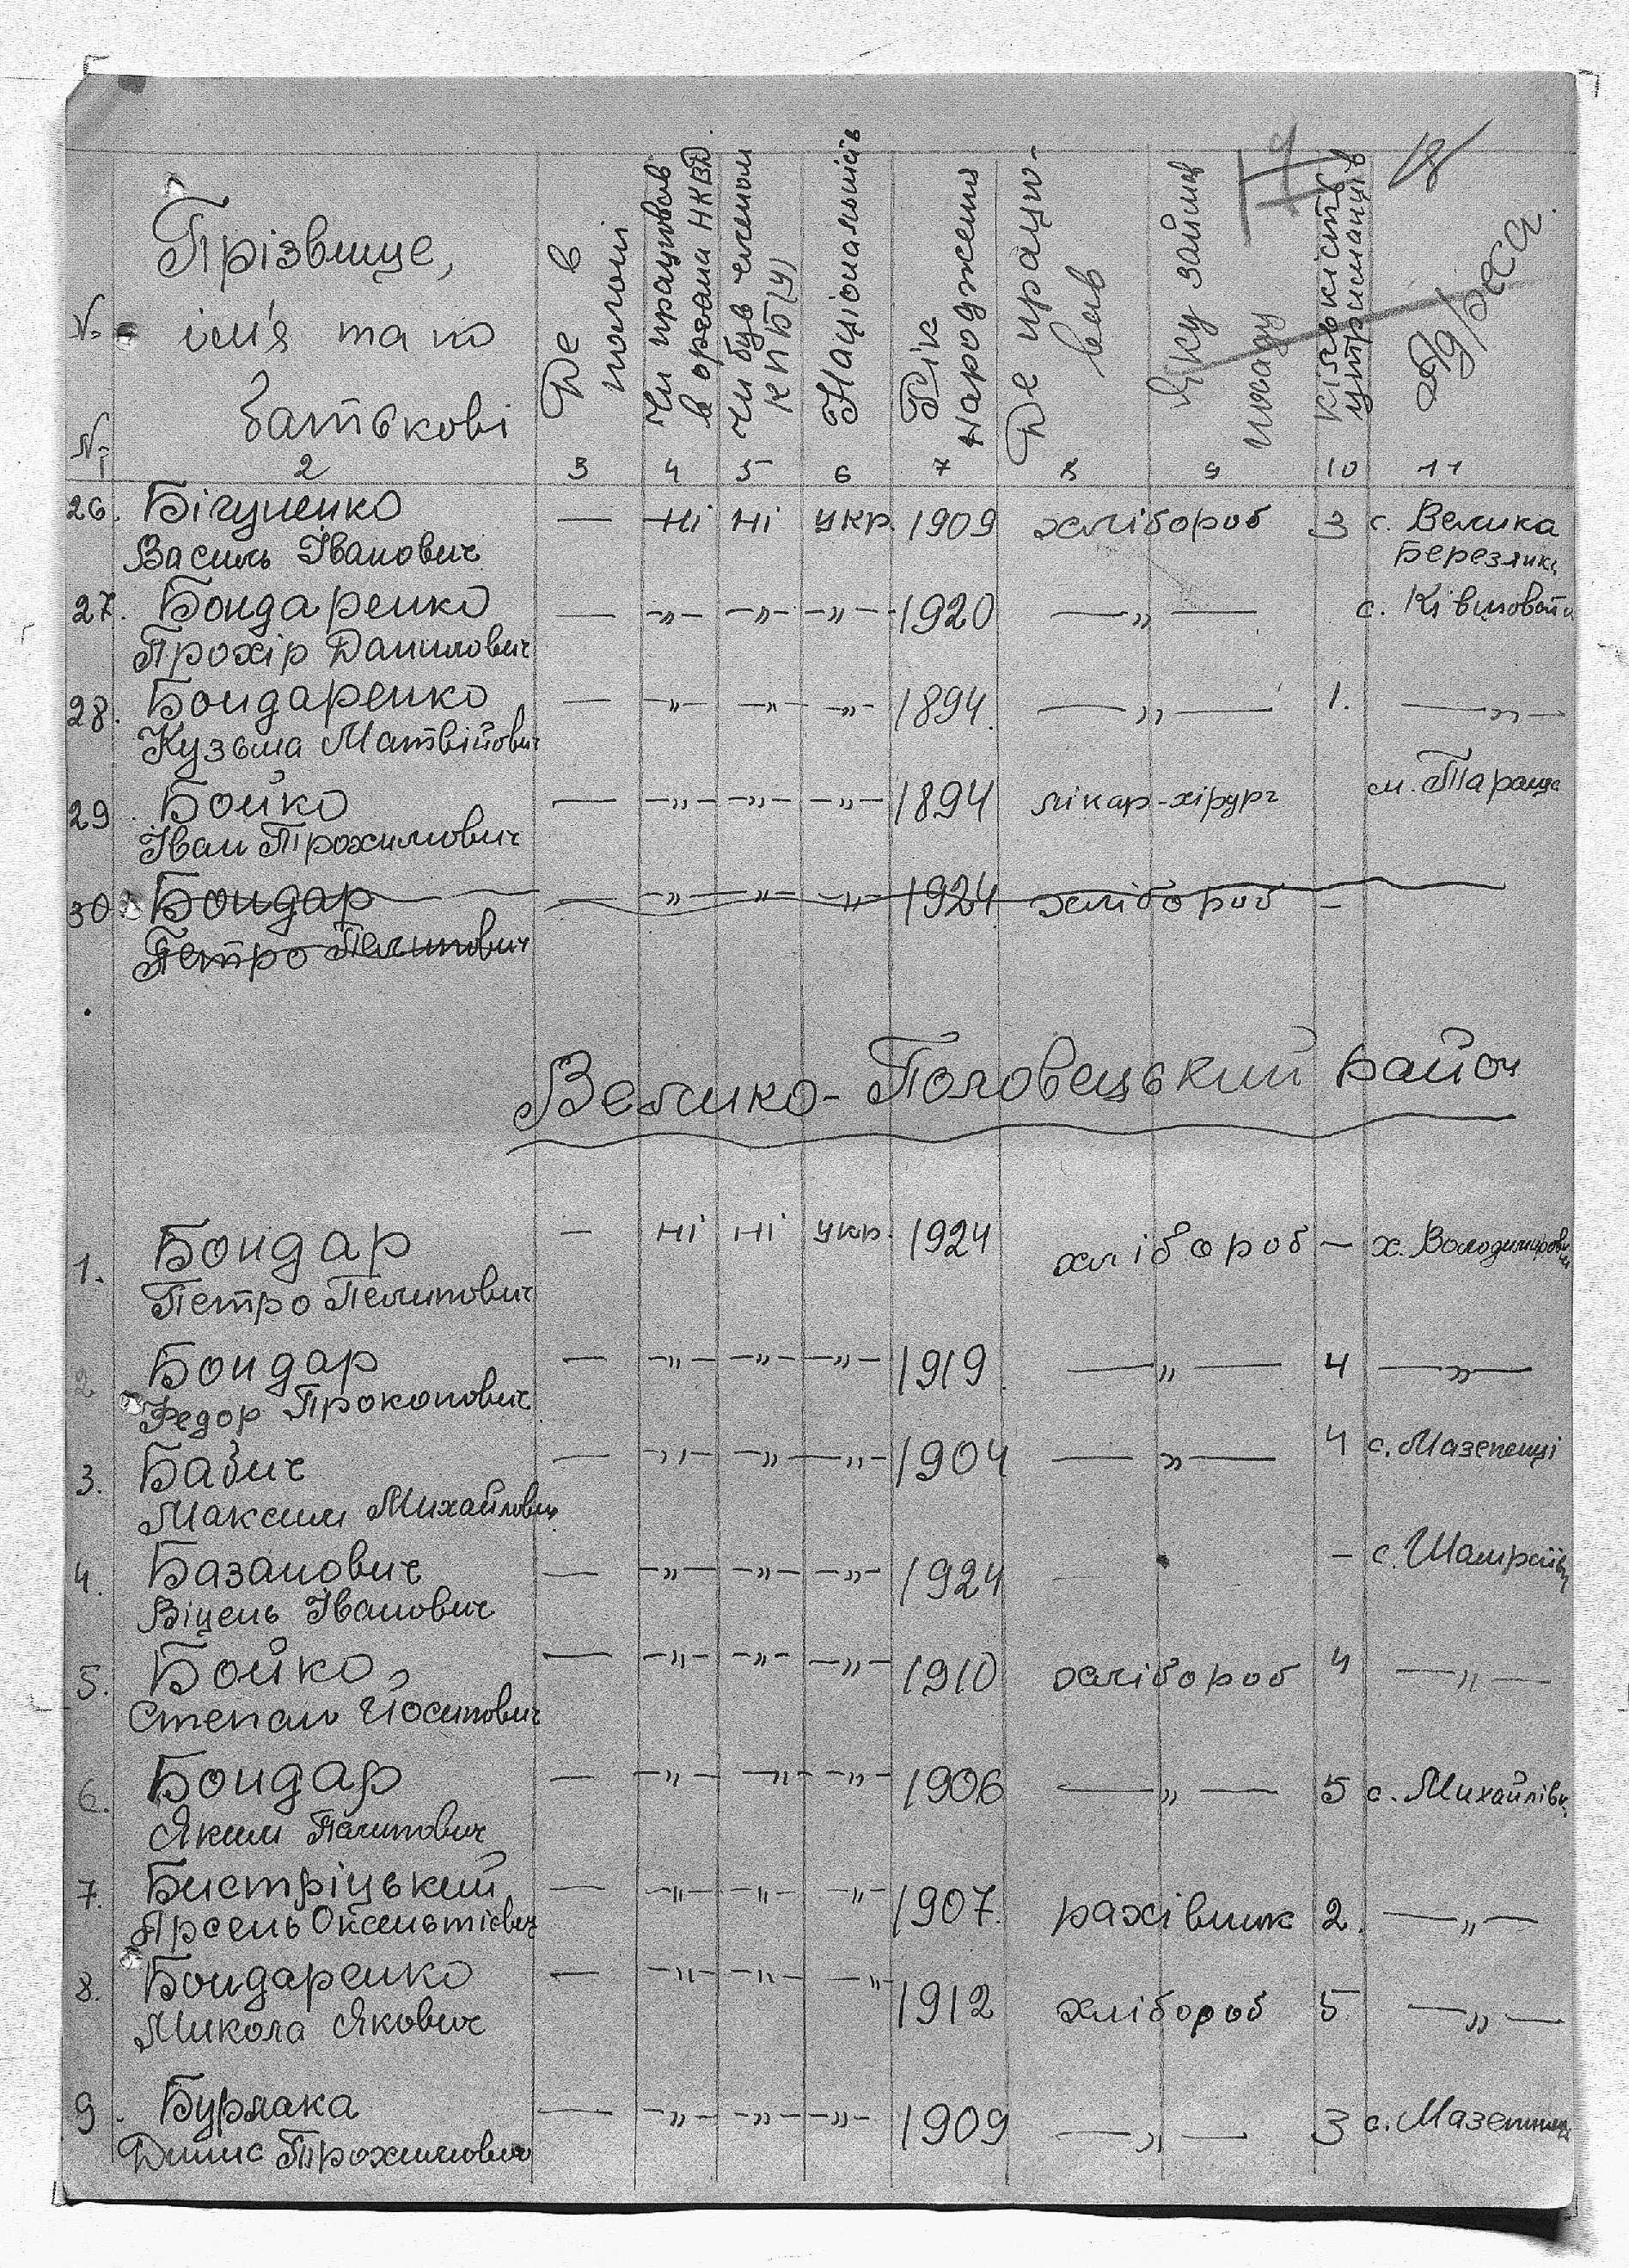 №
№
Прізвище,
ім'я та по
батькові
Де в
полоні
Чи працював
в органах НКВД
Чи був членом
КПБ(У)
Національність
Рік
народження
Де працю-
вав
Яку займав
посаду
кількість
утриманців
Адреса.
2 3 4 5 6 7 8 9 10 11
26. Бігуненко — ні ні укр. 1909 хлібороб 3 с. Велика
Василь Іванович Березянка
27. Бондаренко — -"- -"- -"- 1920 —"— с. Ківшовата
Прохір Данилович
28. Бондаренко — -"- -"- -"- 1894. —"— 1. —"—
Кузьма Матвійович
29. Бойко — -"- -"- -"- 1894 лікар-хірург м. Тараща
Іван Прохимович
30. Бондар — -"- -"- -"- 1924 хлібороб -
Петро Пелипович
Велико-Половецький район
1. Бондар — ні ні укр. 1924 хлібороб — х. Володимирович
Петро Пелипович
2 Бондар — -"- -"- -"- 1919. —"— 4 —"—
Федор Прокопович
3. Бабич — -"- -"- -"- 1904 —"— 4 с. Мазепенці
Максим Михайлович
4. Базанович — -"- -"- -"- 1924 — - с. Шамраївка
Віцень Іванович
5. Бойко — -"- -"- -"- 1910 хлібороб 4 —"—
Степан Йосипович
6. Бондар — -"- -"- -"- 1906 —"— 5 с. Михайлівка
Яким Палипович
7. Бистріцький — -"- -"- -"- 1907. рахівник 2. —"—
Арсень Оксентієвич
8. Бондаренко — -"- -"- -"- 1912 хлібороб 5 —"—
Микола Якович
9. Бурлака — -"- -"- -"- 1909 —"— 3 с. Мазепинці
Динис Прохимович